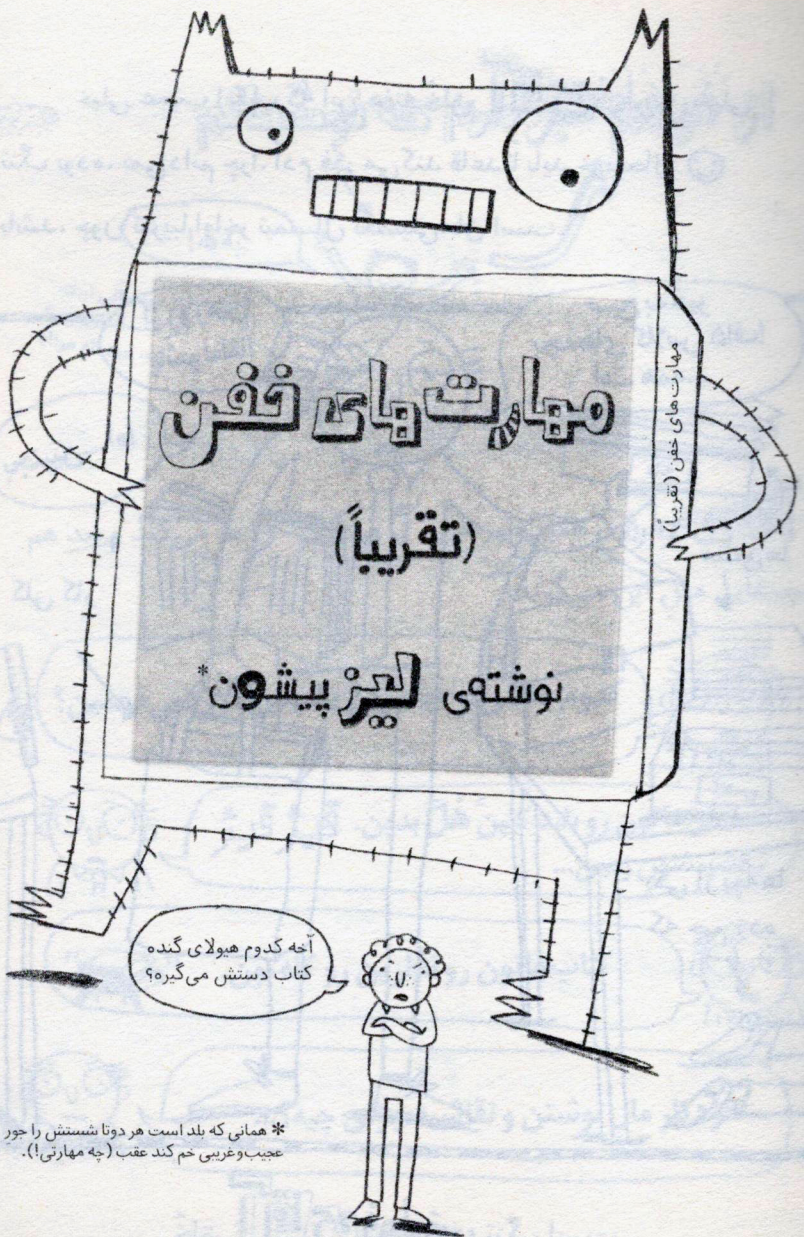 مهارت‌های خفن
(تقریباً)
نوشته‌ی لیز پیشون*
مهارت‌های خفن (تقریباً)
آخه کدوم هیولای گنده
کتاب دستش می‌گیره؟
* همانی که بلد است هر دوتا شستش را جور
عجیب‌وغریبی خم کند عقب (چه مهارتی!).